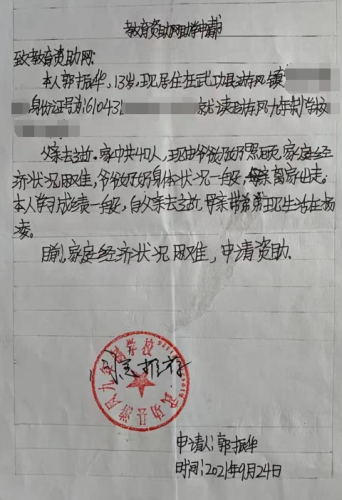 教育资助网助学申请书
致教育资助网:
本人郭振华,13岁,现居住在武功县游凤镇
身份证号为610431 就读游凤九年制学校
父亲去世。家中共有4口人,现由爷爷奶奶照顾,家庭经
济状况困难,爷爷奶奶身体状况一般,母亲离家出走。
本人学习成绩一般,自父亲去世,母亲带弟弟现生活在杨
凌。
目前,家庭经济状况困难,申请资助。
情况推荐
武功县游凤九年制学校
申请人:郭振华
时间:2021年9月24日